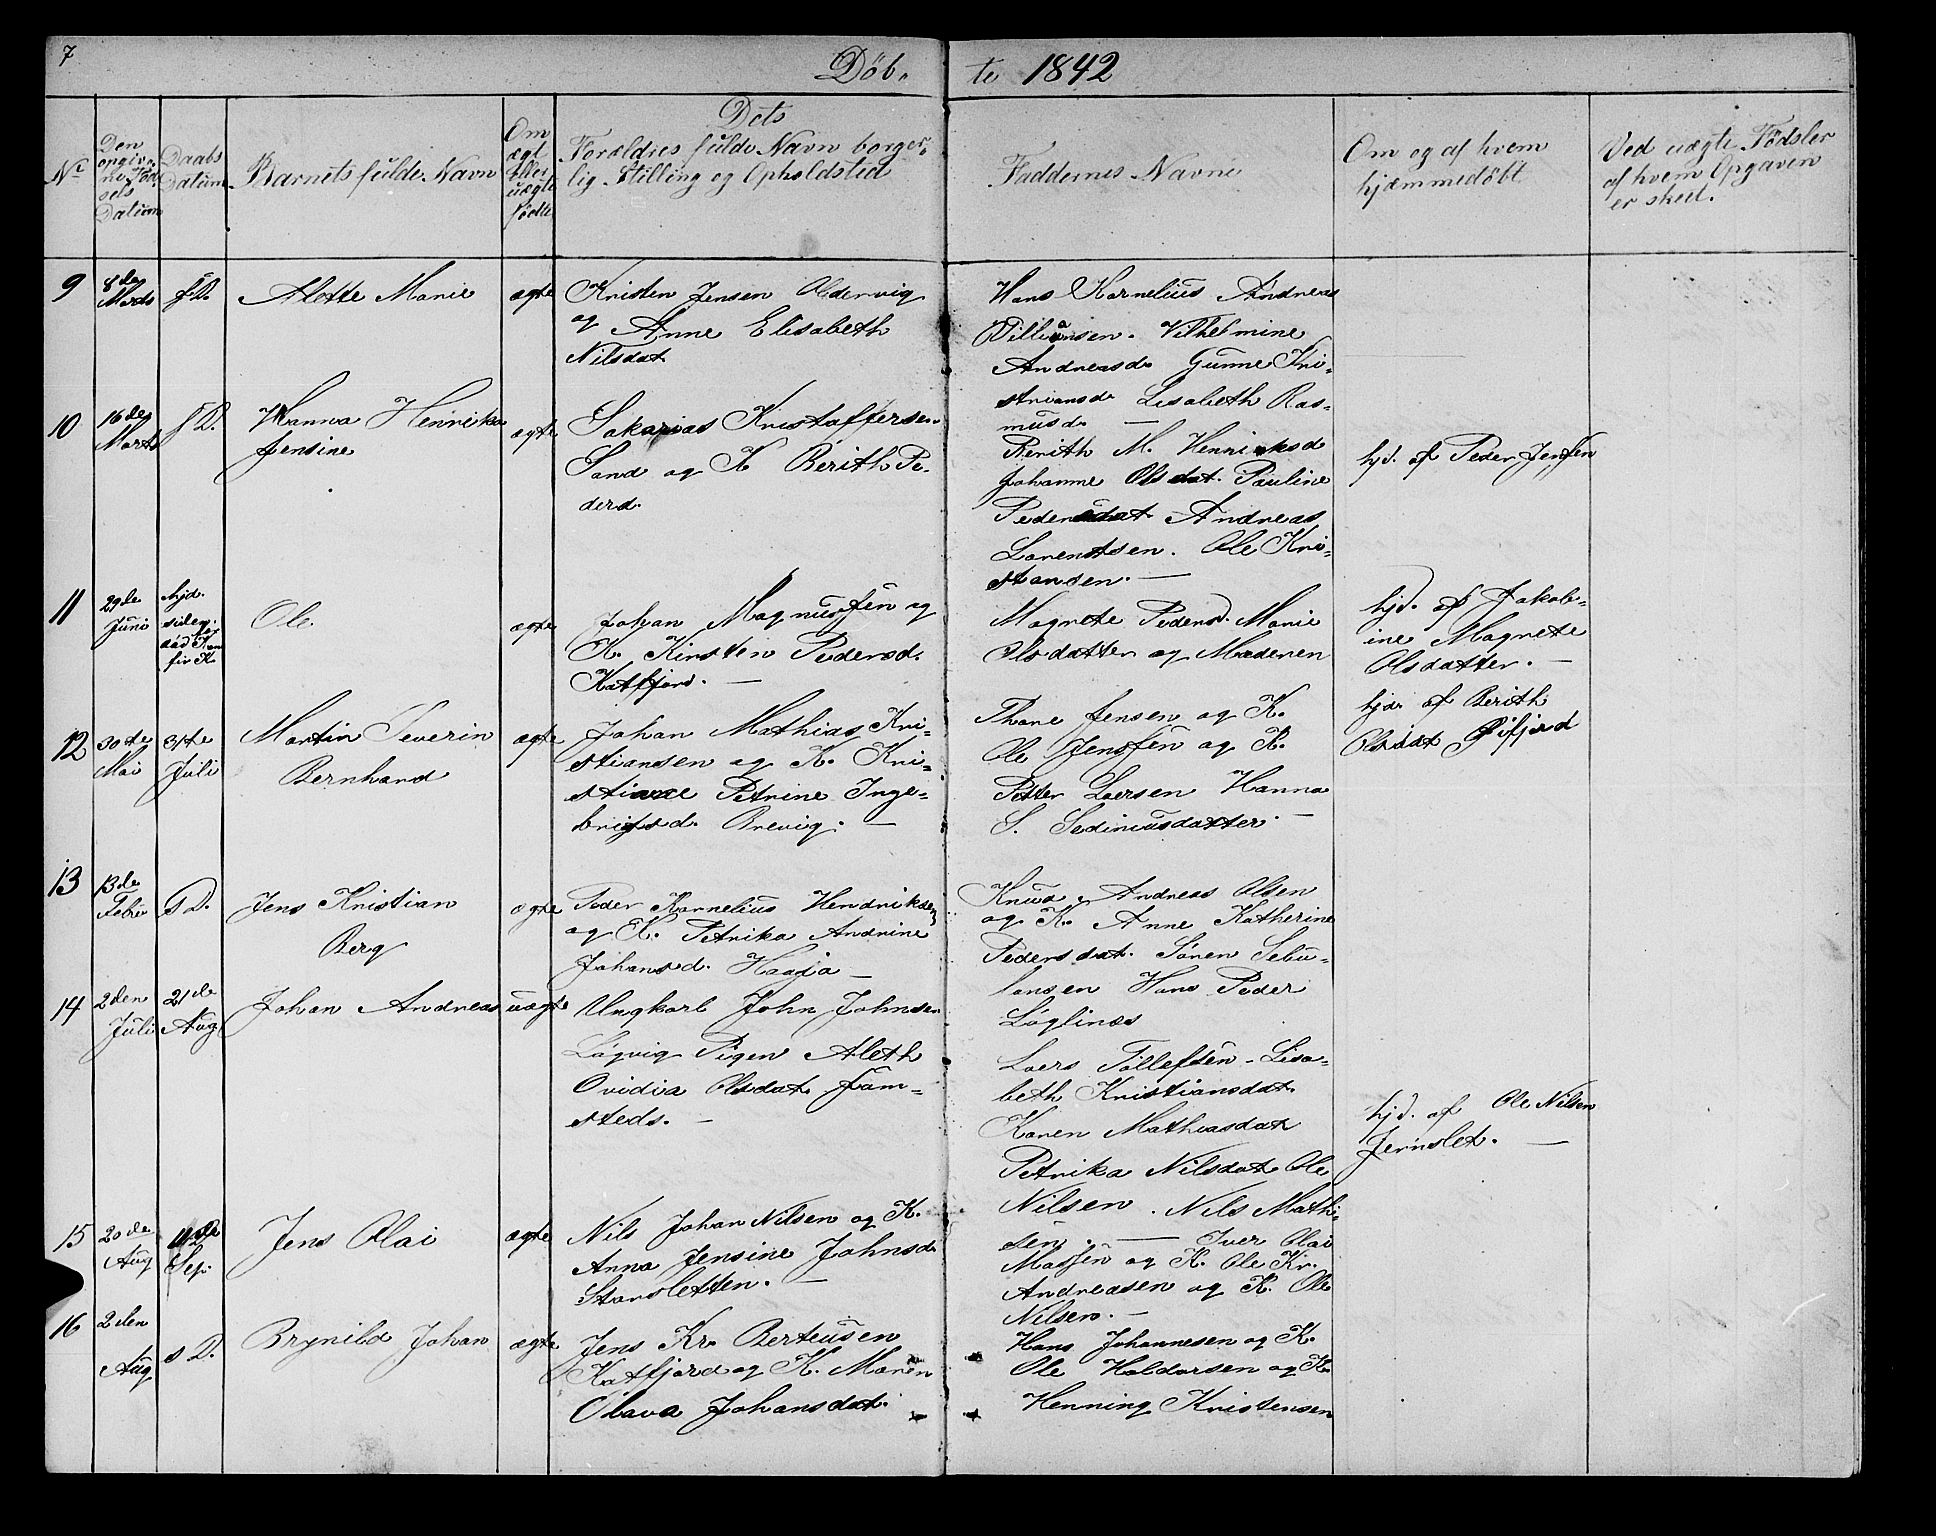 7
Döb-
te 1842
Nr
Den opgivne Födsels Datum
Daabs Datum
Barnets fulde Navn
Om ægte eller uægte födte
Dets Forældres fulde Navn borgerlig Stilling og Opholdsted
Faddernes Navne
Om og af hvem hjæmmedöbt
Ved uægte Födsler af hvem Opgaven er skeet.
9
8de Marts
s D.
Alotte Marie
ægte
Kristen Jensen Oldervig
og Anne Elisabeth
Nilsdat
Hans Kornelius Andreas
Villiamsen. Vilhelmine
Andreasd. Gunne Kri-
striansd. Lisabeth Ras-
musd. —
10
16de Marts
s D.
Hanna Henrika
Jensine
ægte
Sakarias Kristoffersen
Sand og K Berith Pe-
dersd.
Berith M. Henriksd
Johanne Olsdat. Pauline
Pedersdat Andreas
Lorentsen. Ole Kri-
stansen. —
hjd. af Peder Jenssen
11
29de Juni
hjd.
Ole
ægte
Johan Magnussen og
K. Kirsten Pedersd.
Katfjord. —
Magrete Pedersd. Marie
Olsdatter og Moderen
hjd. af Jakob-
ine Magrete
Olsdatter. —
12
30te Mai
31te Juli
Martin Severin
Bernhard
ægte
Johan Mathias Kri-
stiansen og K. Kri-
stiane Petrine Inge-
brigtsd. Brevig. —
Thore Jensen og K.
Ole Jenssen og K.
Petter Larsen Hanna
S. Sediniusdatter. —
hjd. af Berith
Olsdat
13
13de Febr
s D.
Jens Kristian
Berg
ægte
Peder Kornelius Hendriksen
og K. Petrika Andrine
Johansd. Haaja —
Knud Andreas Olsen
og K. Anne Katherine
Pedersdat. Sören Sebu-
lonsen Hans Peder
Löglinæs
14
2den Juli
21de Aug
Johan Andreas
uægte
Ungkarl John Johnsen
Lögvig Pigen Aleth
Ovidia Olsdat. Sam-
steds. —
Lars Tollefsen. Lisa-
beth Kristiansdat
Karen Mathiasdat
Petrika Nilsdat Ole
Nilsen. Nils Mathi-
sen. —
hjd. af Ole Nilsen
Jernslet. —
15
20de Aug
11de Sep.
Jens Olai
ægte
Nils Johan Nilsen og K.
Anna Jensine Johnsd.
Storsletten. —
Iver Olai
Matsen og K. Ole Kr.
Andreasen og K. Ole
Nilsen. —
16
2den Aug
s D.
Brynild Johan
ægte
Jens Kr. Berteusen
Katfjord og K. Maren
Olava Johansdat.
Hans Johannesen og K.
Ole Haldorsen og K.
Henning Kristensen